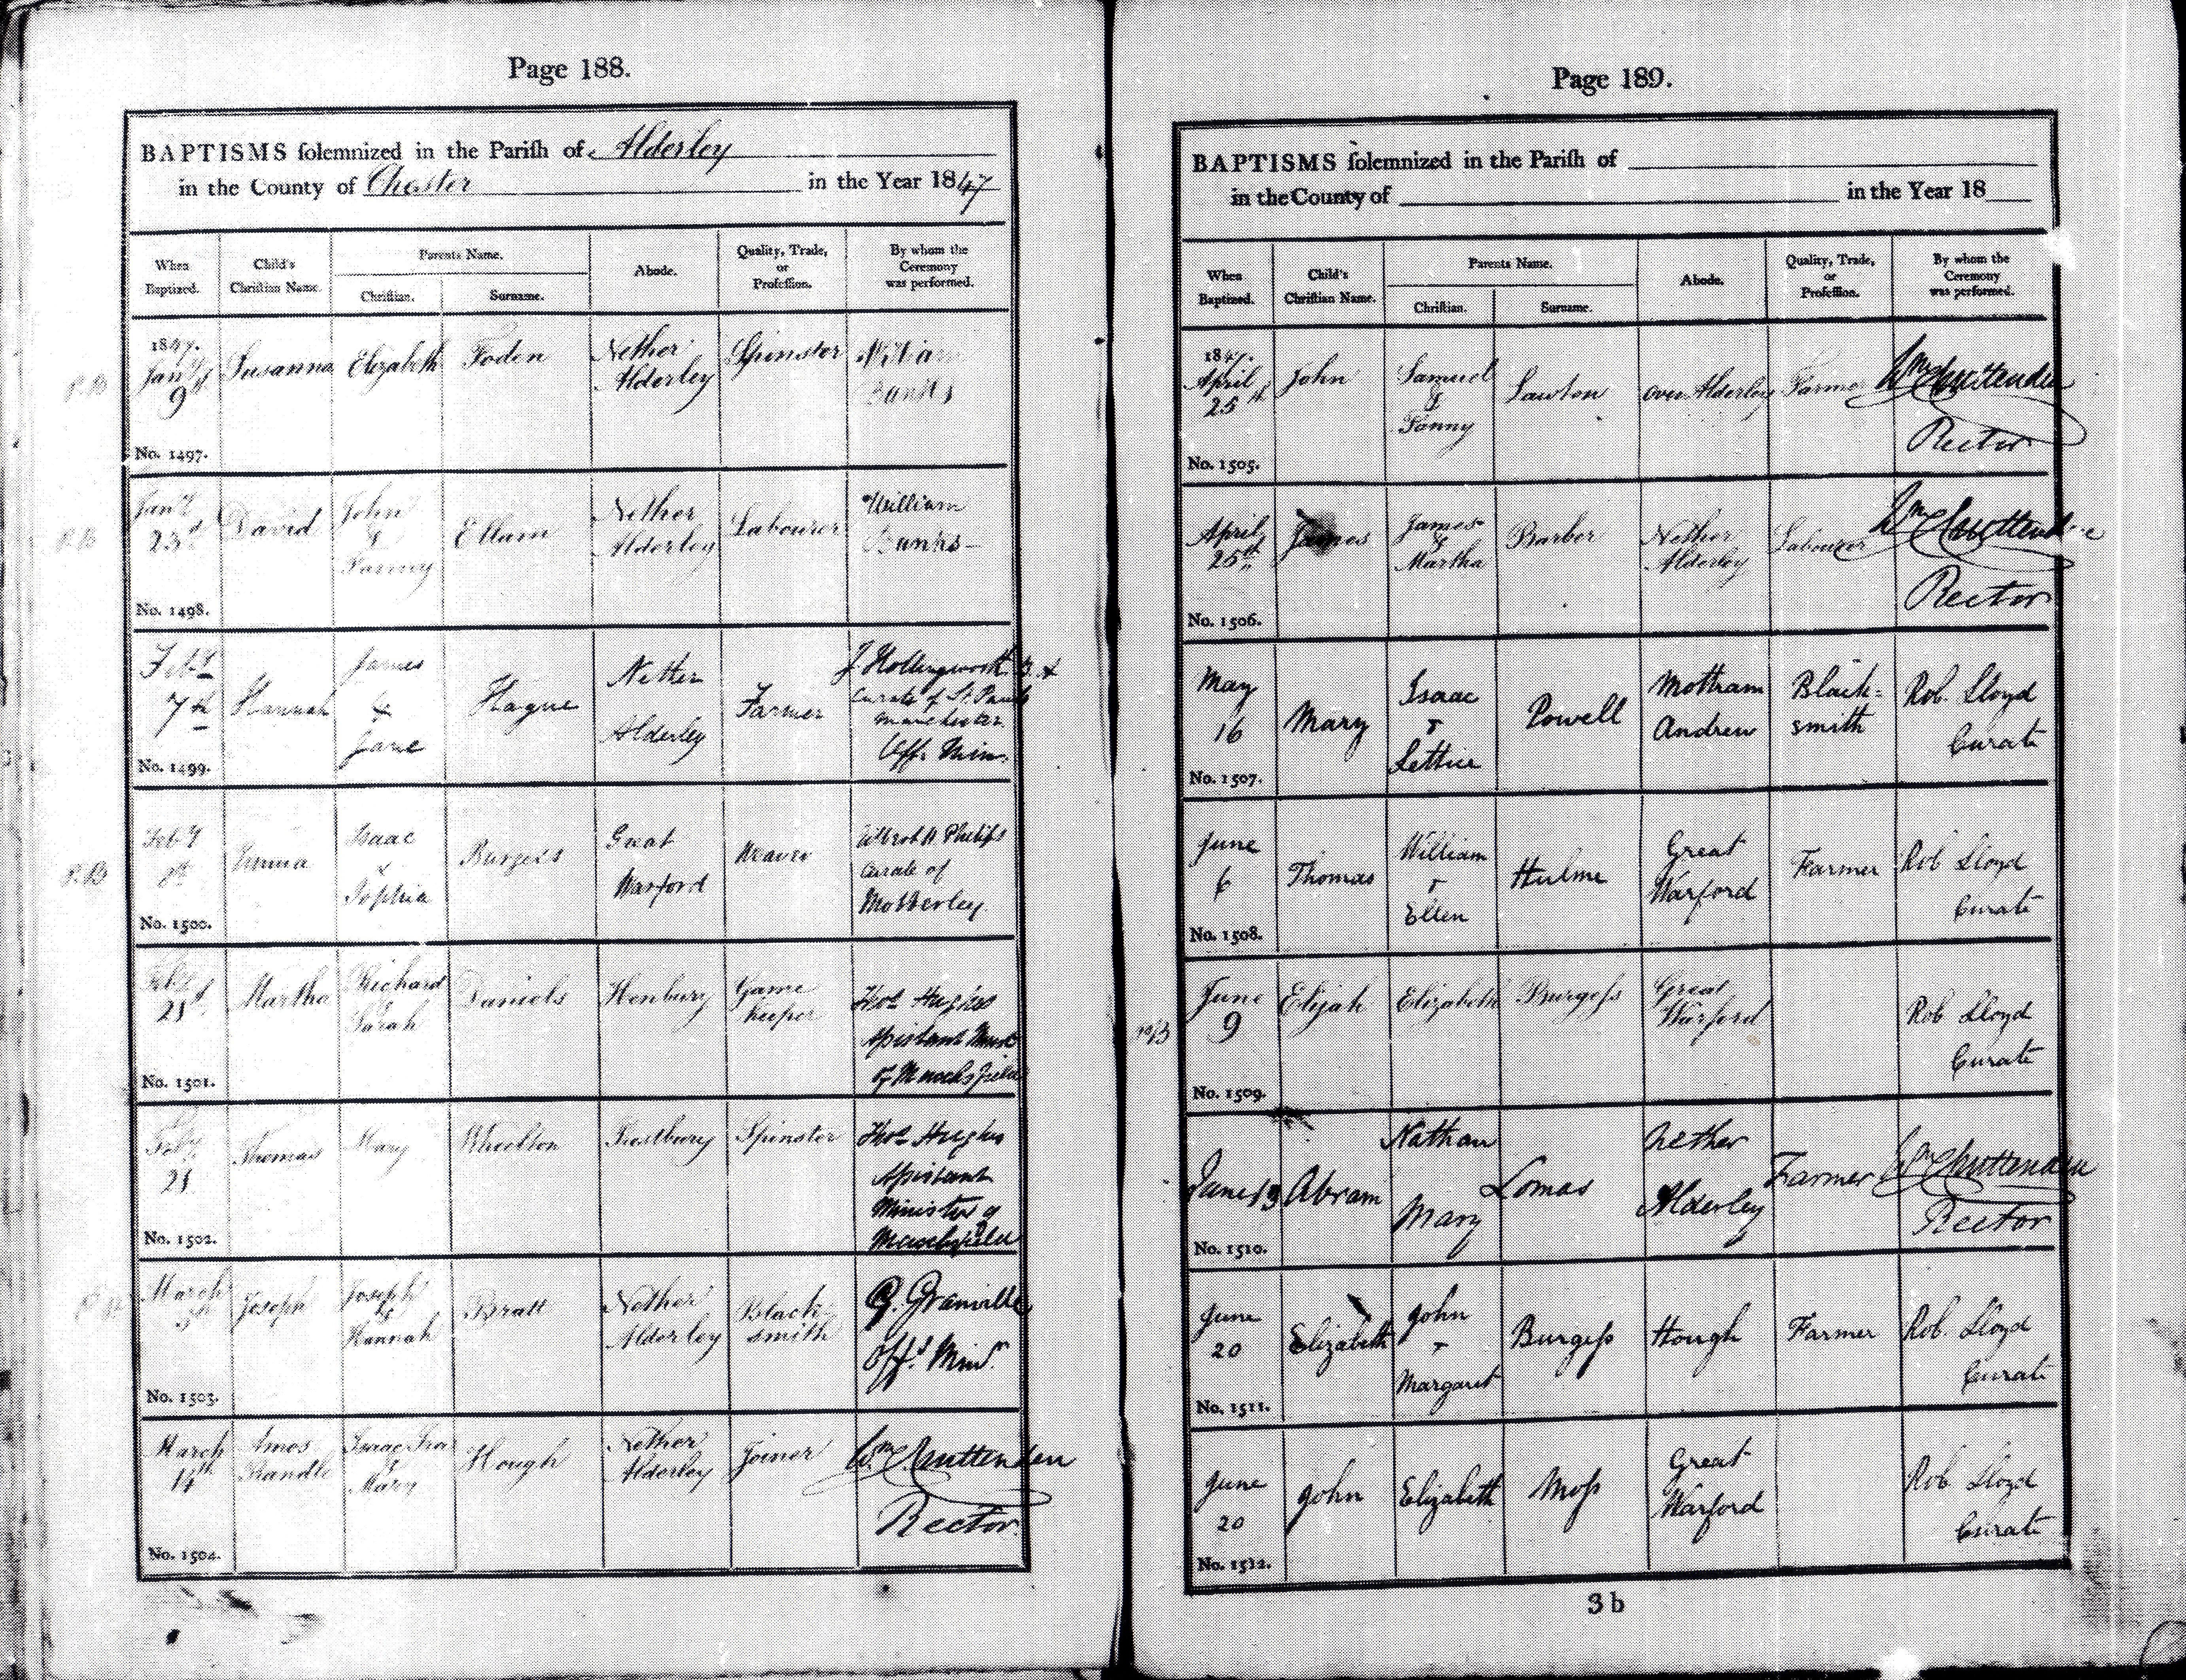 Page 188.
BAPTISMS solemnized in the Parish of Alderley
in the County of Chester in the Year 1847
When Baptized.
Child's Christian Name.
Parents Name.
Christian.
Surname.
Abode.
Quality, Trade, or Profession.
By whom the Ceremony was performed.
1847. Jany 9th
Susanna
Elizabeth
Foden
Nether Alderley
Spinster
William Banks
No. 1497.
Jany 23d
David
John & Fanny
Ellam
Nether Alderley
Labourer
William Banks
No. 1498.
Feby 7th
Hannah
James & Jane
Hague
Nether Alderley
Farmer
J Hollingworth
Curate of St. Pauls
Manchester
Off. Min.
No. 1499.
Feby
Emma
Isaac & Sophia
Burgess
Great Warford
Weaver
Phelips
Curate of
Mobberley
No. 1500.
Feby 21st
Martha
Richard & Sarah
Daniels
Henbury
Game keeper
Thos Hughes
Assistant Minr
of Macclesfield
No. 1501.
Feby 21
Thomas
Mary
Wheelton
Prestbury
Spinster
Thos Hughes
Assistant
Minister of
Macclesfield
No. 1502.
March
Joseph
Joseph & Hannah
Bratt
Nether Alderley
Black smith
G. Granville
Offg Minr.
No. 1503.
March 14th
Amos Randle
Isaac & Mary
Hough
Nether Alderley
Joiner
Wm Cruttenden
Rector
No. 1504.
Page 189.
BAPTISMS solemnized in the Parish of
in the County of in the Year 18
When Baptized.
Child's Christian Name.
Parents Name.
Christian.
Surname.
Abode.
Quality, Trade, or Profession.
By whom the Ceremony was performed.
1847. April 25th
John
Samuel & Fanny
Lawton
Over Alderley
Farmer
Wm Cruttenden
Rector
No. 1505.
April 25th
James
James & Martha
Barber
Nether Alderley
Labourer
Wm Cruttenden
Rector
No. 1506.
May 16
Mary
Isaac + Lettice
Powell
Mottram Andrew
Black=smith
Rob. Lloyd
Curate
No. 1507.
June 6
Thomas
William + Ellen
Hulme
Great Warford
Farmer
Rob Lloyd
Curate
No. 1508.
June 9
Elijah
Elizabeth
Burgess
Great Warford
Rob Lloyd
Curate
No. 1509.
June 13
Abram
Nathan Mary
Lomas
Nether Alderley
Farmer
Wm Cruttenden
Rector
No. 1510.
June 20
Elizabeth
John + Margaret
Burgess
Hough
Farmer
Rob. Lloyd
Curate
No. 1511.
June 20
John
Elizabeth
Moss
Great Warford
Rob Lloyd
Curate
No. 1512.
3 b